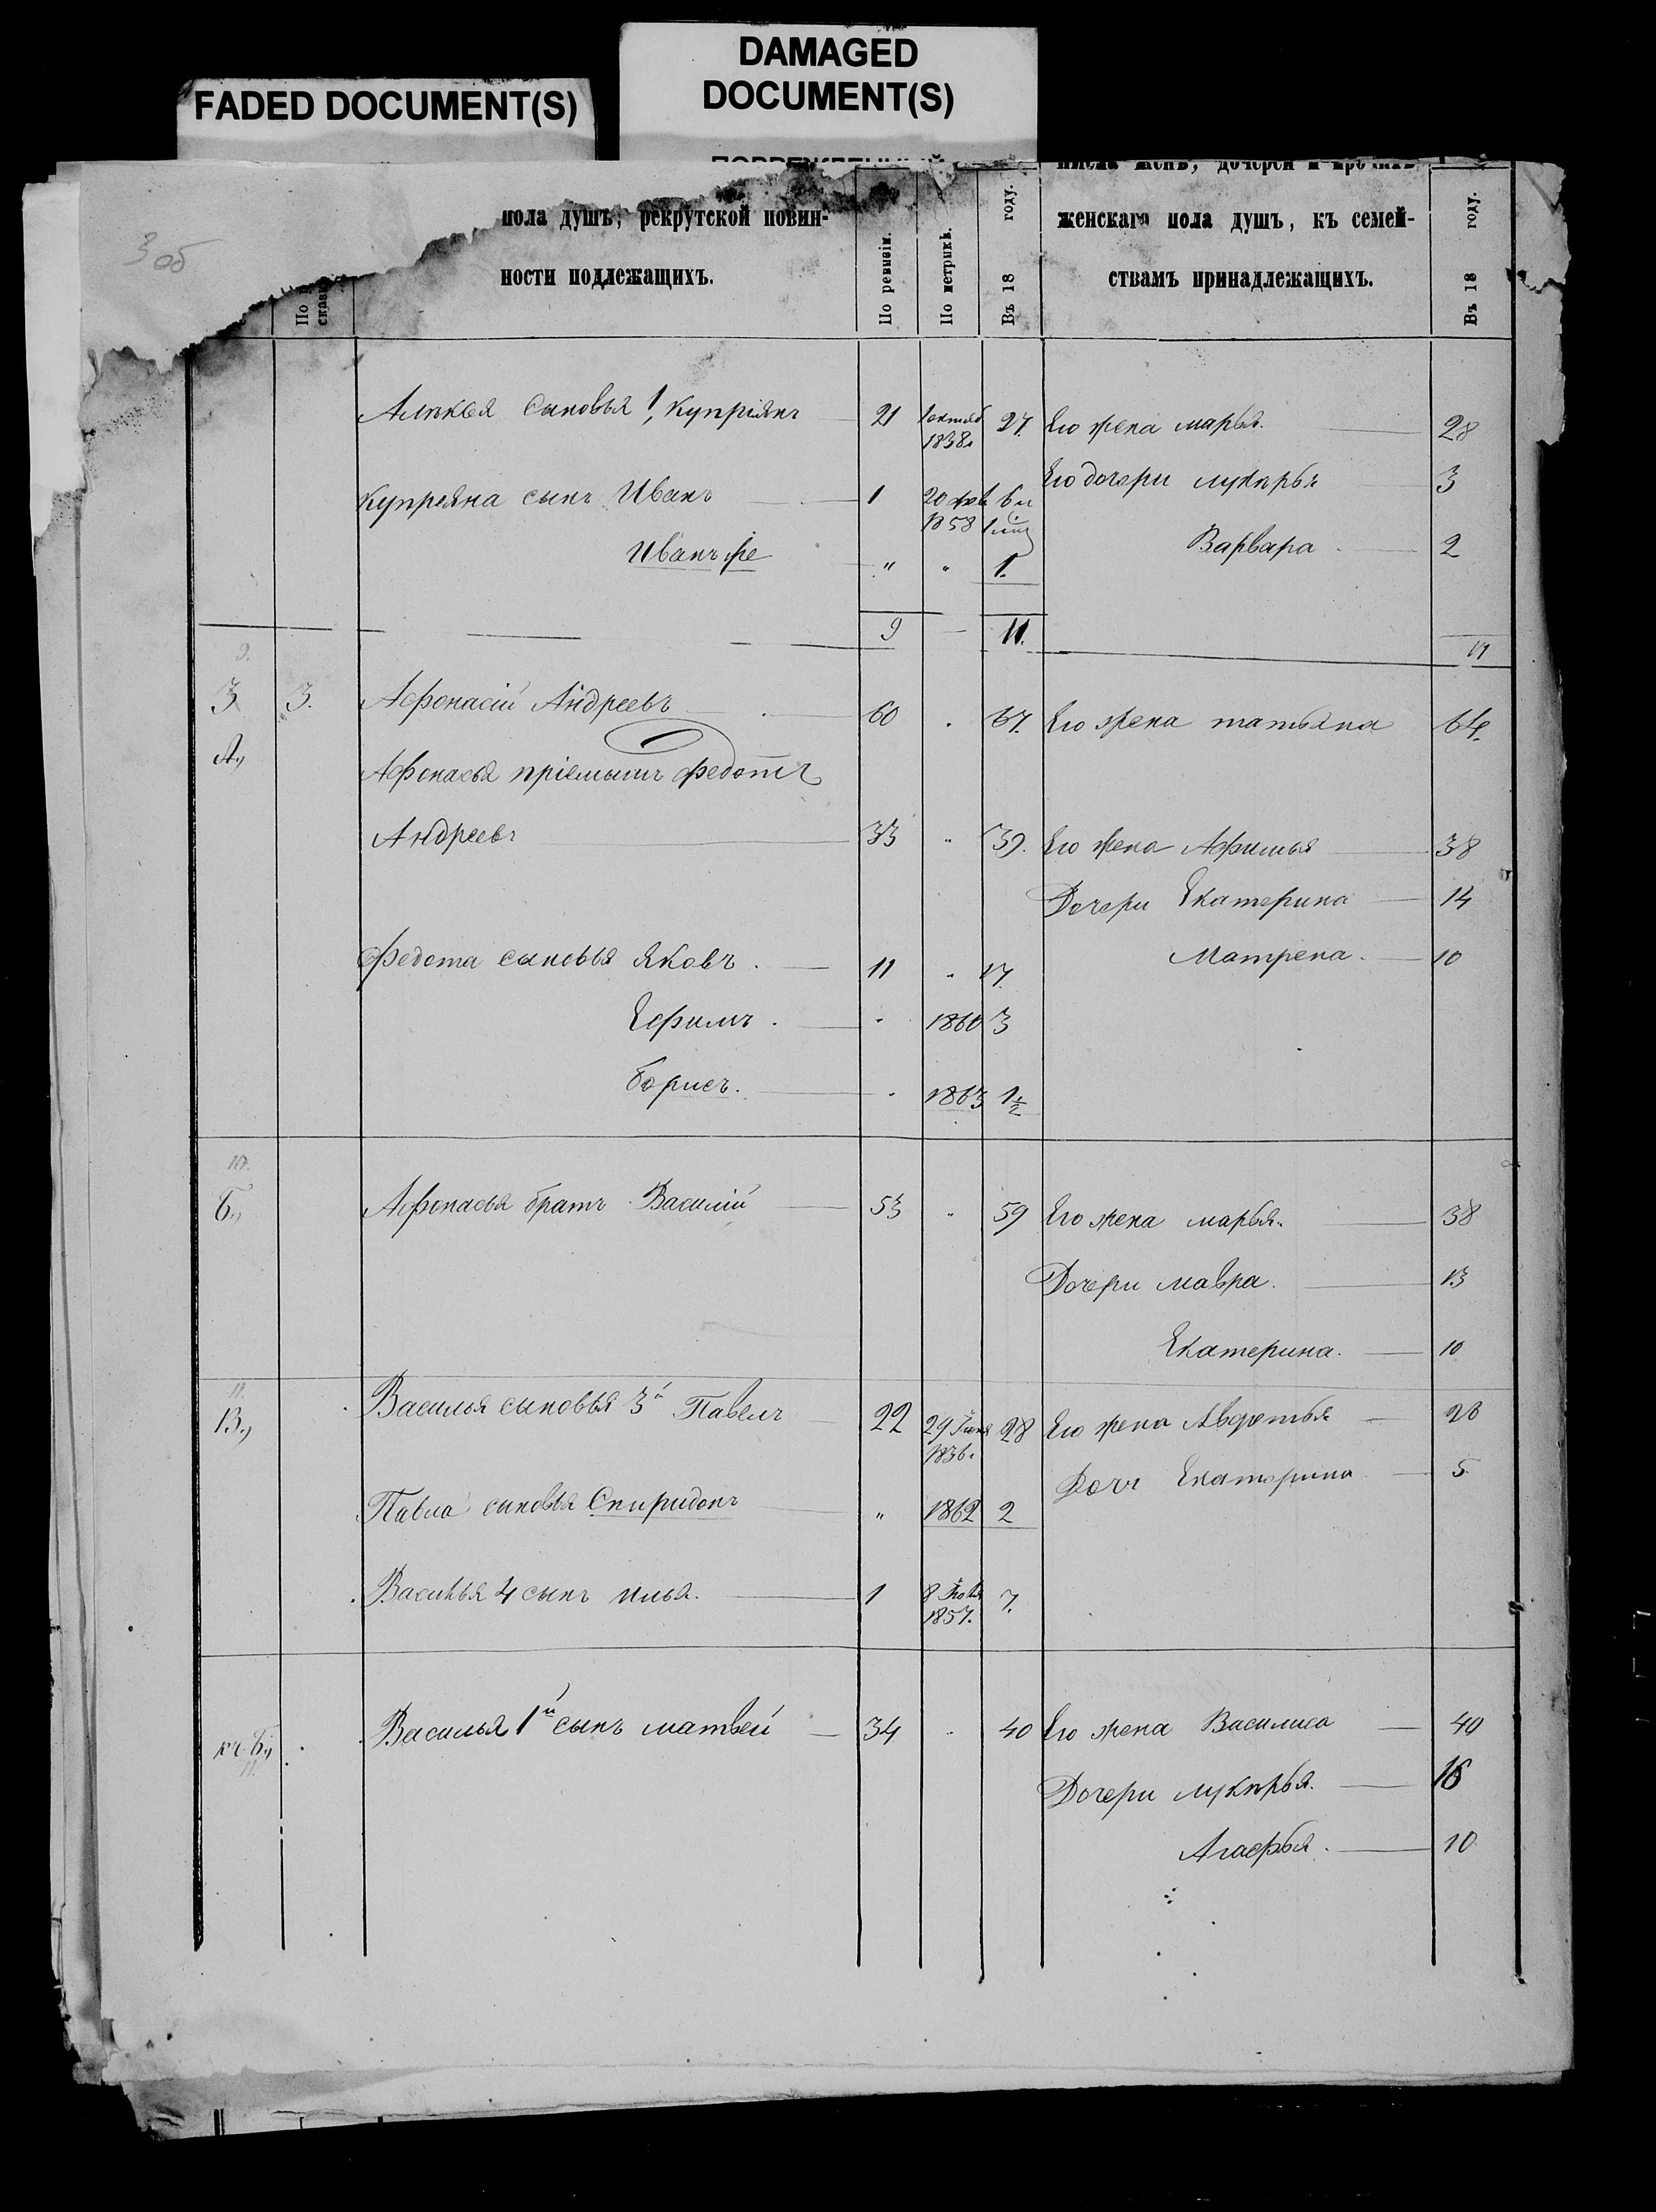 FADED DOCUMENT(S)
DAMAGED
DOCUMENT(S)
3 об
По
пола душъ, рекрутской повин-
ности подлежащихъ.
По ревизіи.
По метрикѣ.
Въ 18 году.
женскаго пола душъ, къ семей-
ствамъ принадлежащихъ.
Въ 18 году.
сыновья 1, Купріянъ 21 1 октяб 1838 27. Его жена марья. 28
Купреяна сынъ Иванъ 1 20 1858 6 Его дочери лукѣрья 3
Иванъ же " " 1. Варвара 2
9 — 11. 14
9.
3 3. Афонасій Андреевъ 60 . 67. Его жена татьяна 64.
А.,
Афонасья пріемышъ Федотъ
Андреевъ 33 " 39. Его жена Афимья 38
Дочери Екатерина 14
Федота сыновья Яковъ. 11 " 17. Матрена. 10
Ефимъ. " 1860 3
борисъ. " 1863 1½
10.
Б., Афонасья братъ Василій 53 " 59 Его жена марья. 38
Дочери мавра. 13
Екатерина. 10
11.
В., Василья сыновья 3й Павелъ 22 29 1836. 28 Его жена Авдотья 26
Дочь Екатерина 5.
Павла сыновья Спиридонъ " 1862 2
Василья 4 сынъ илья. 1 8 1857. 7.
къ Б., Василья 1й сынъ матвей 34 " 40 Его жена Василиса 40
11.
Дочери лукѣрья. 16
Агафья. 10